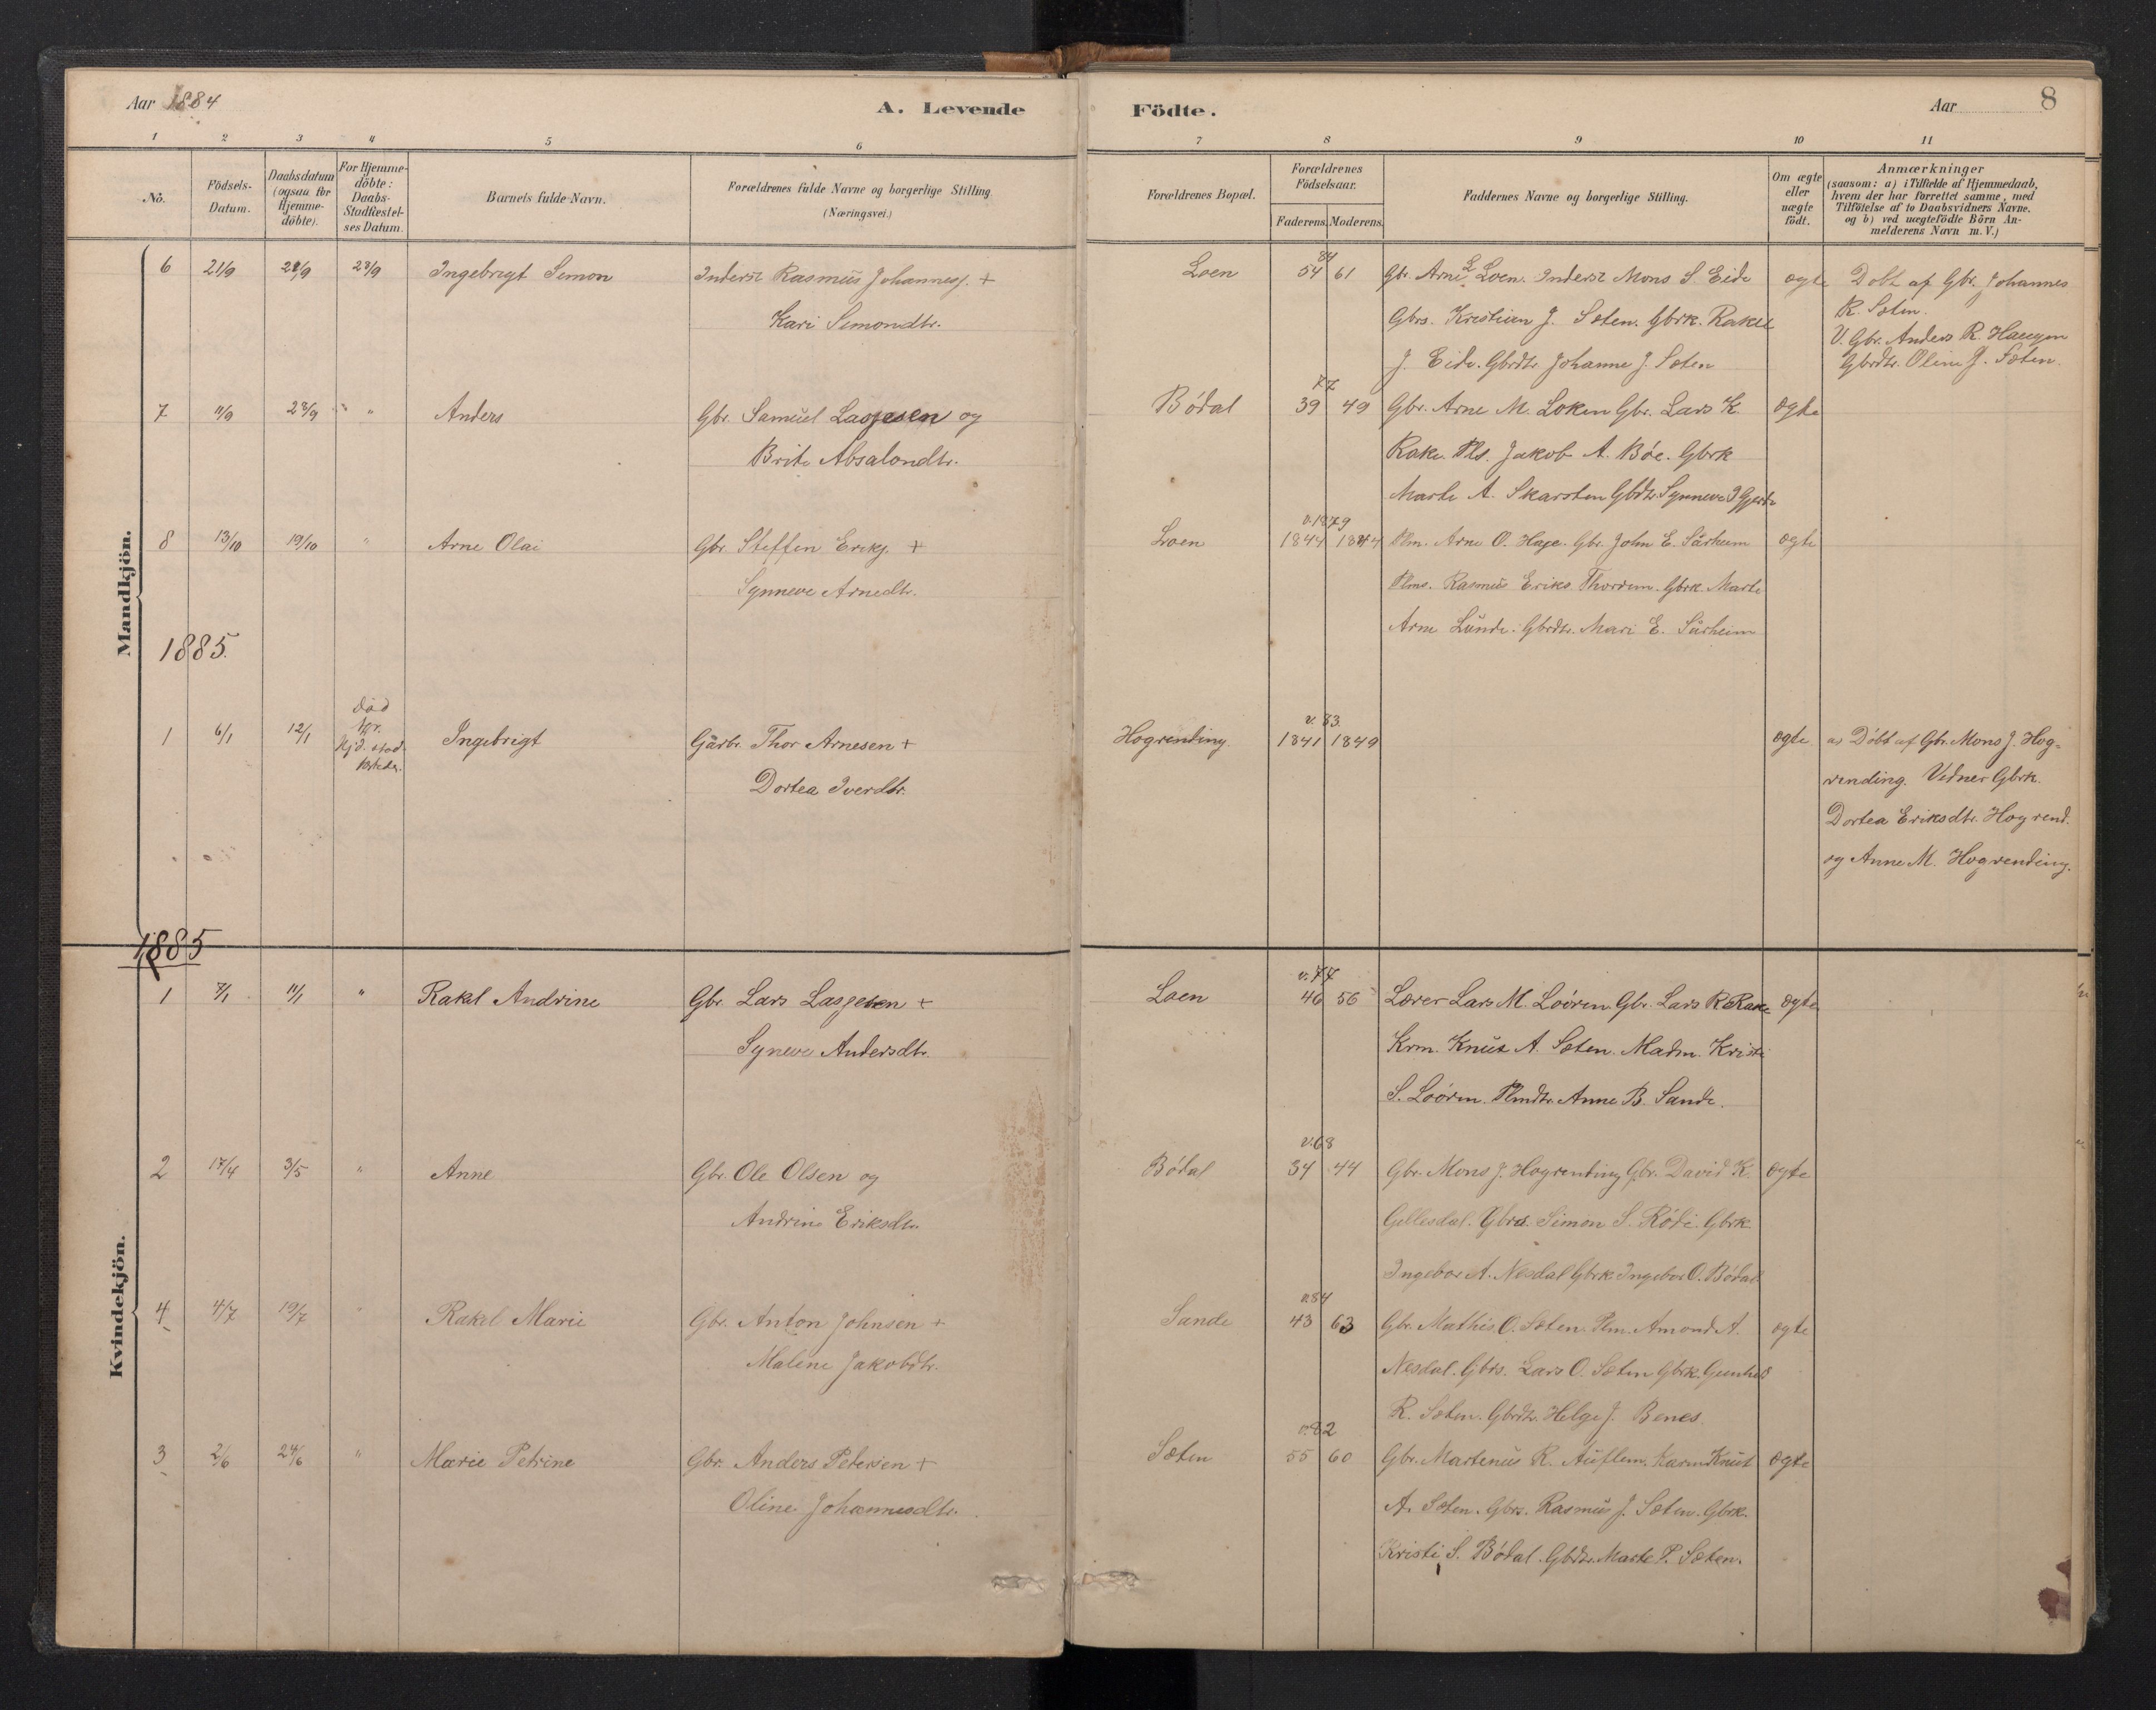 Aar 1884
A. Levende Födte.
Aar 8
1 2 3 4 5 6 7 8 9 10 11
No.
Födsels-
Datum.
Daabsdatum
(ogsaa for
Hjemme-
döbte).
For Hjemme-
döbte:
Daabs-
Stadfæstel-
ses Datum.
Barnets fulde Navn.
Forældrenes fulde Navne og borgerlige Stilling
(Næringsvei.)
Forældrenes Bopæl.
Forældrenes
Födselsaar.
Faderens. Moderens.
Faddernes Navne og borgerlige Stilling.
Om ægte
eller
uægte
födt.
Anmærkninger
(saasom: a) i Tilfælde af Hjemmedaab,
hvem der har forrettet samme, med
Tilföielse af to Daabsvidners Navne.
og b) ved uægtefödte Börn An-
melderens Navn m. V.)
Mandkjön.
6 21/9 28/9 Ingebrigt Simon
Inderst Rasmus Johannesj. +
Kari Simondtr.
Loen
84
54 61
Gbr. Arne L. Loen. Inderst Mons S. Eide
Gbrs. Kristian J. Sæten. Gbrk. Rakel
J. Eide. Gbrdtr. Johanne J. Sæten
ægte
Döbt af Gbr. Johannes
R. Sæten.
V. Gbr. Anders R. Haugen
Gbrdtr. Oline J. Sæten.
7 11/9 28/9 " Anders
Gbr. Samuel Lassesen og
Brite Absalondtr.
Bödal
77
39 49
Gbr. Arne M. Loken Gbr. Lars K.
Rake. Pls. Jakob A. Böe. Gbrk
Marte A. Skarsten Gbdtr. Synneve
ægte
8 13/10 19/10 " Arne Olai
Gbr. Steffen Erikj. +
Synneve Arnedtr.
Loen
v. 1879
1844 1844
Plm. Arne O. Hage. Gbr. John E. Sårheim
Plms. Rasmus Eriks. Gbrk. Marte
Arne Lunde. Gbrdtr. Mari E. Sårheim
ægte
1885.
1 6/1 12/1 död
Ingebrigt
Gårbr. Thor Arnesen +
Dortea Iverdtr.
Hogrending
v. 83.
1841 1849
ægte
a, Döbt af Gbr. Mons J. Hog-
rending. Vidner Gbrk.
Dortea Eriksdtr. Hogrend.
og Anne M. Hogrending.
1885
Kvindekjön.
1 7/1 11/1 " Rakel Andrine
Gbr. Lars Lassesen +
Syneve Andersdtr.
Loen
v. 77
46 56
Lærer Lars M. Loören Gbr. Lars R Rake
Krm. Knut A. Sæten. Madm. Kristi
S. Loören. Plmdtr. Anne B. Sande.
ægte
2 17/4 3/5 " Anne
Gbr. Ole Olsen og
Andrine Eriksdtr.
Bödal
v. 68
34 44
Gbr. Mons J. Hogrending Gbr. David K.
Gellesdal. Gbrs. Simon S. Röde. Gbrk
Ingebor A. Nesdal Gbrk Ingebor O. Bödal
ægte
4 4/7 19/7 " Rakel Marie
Gbr. Anton Johnsen +
Malene Jakobdtr.
Sande
v. 84
43 63
Gbr. Mathis O. Sæten. Plm. Amond A.
Nesdal. Gbrs. Lars O. Sæten Gbrk. Gunhild
R. Sæten. Gbrdtr. Helge J. Benes.
ægte
3 2/6 24/6 " Marie Petrine
Gbr. Anders Petersen +
Oline Johannesdtr.
Sæten
v. 82
55 60
Gbr. Martenus R. Auflem. Karm Knut
A. Sæten. Gbrs. Rasmus J. Sæten. Gbrk.
Kristi S. Bödal. Gbdtr. Marte P. Sæten.
ægte